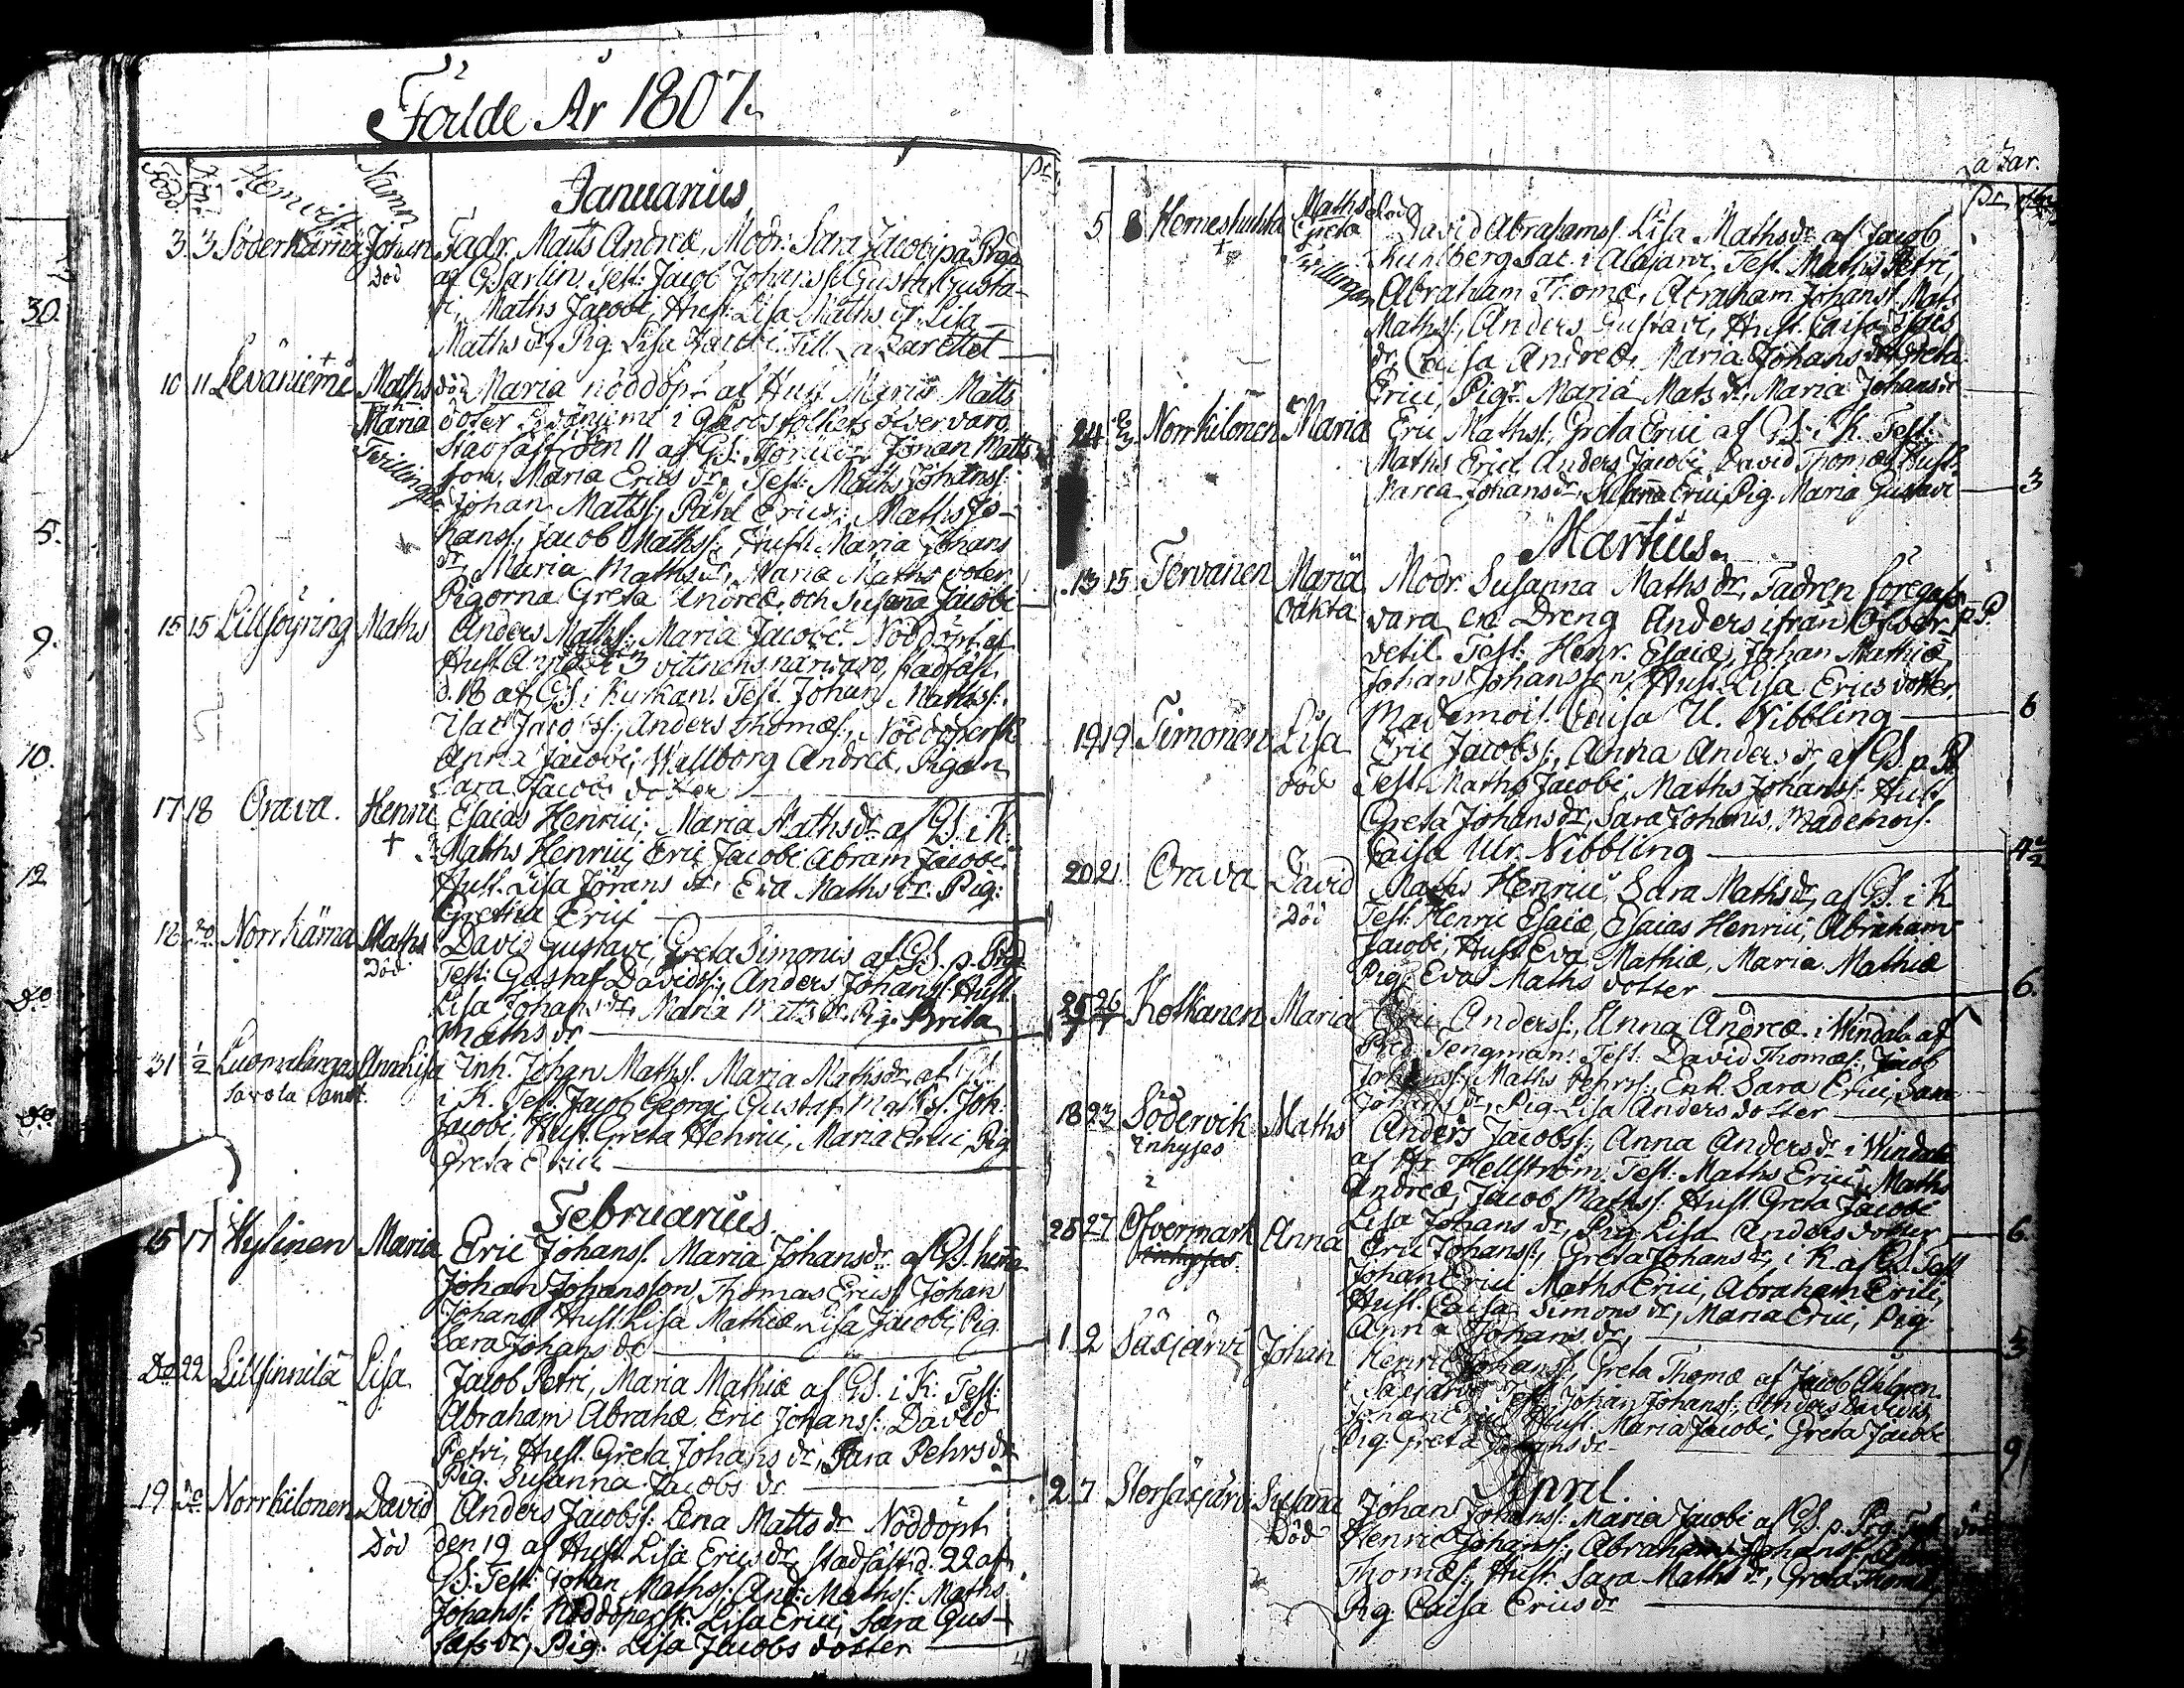 Födde År 1807.
Född. Hemvist Namn
Januarius
3 3 Söderkärnä Johan Fadr. Matts Andreæ, Modr. Sara Jacobi på Prgd
Död af GSarlin. Test: Jacob Johanss: Gustaf Gusta-
vi, Maths Jacobi, Hust: Lisa Maths dr. Lisa
Maths dr, Pig. Lisa Jacobi. Till Lazarettet
10 11 Leväniemi Maths död Maria nöddöpt af Hust Maria Matts
Maria doter Leväniemi i Gårdsfolkets öfvervaro
Tvillingar Stadfäst den 11 af GS: Föräldr. Johan Matts
son, Maria Erics dr. Test: Maths Johanss:
Johan Mattss:, Påhl Erici, Maths Jo-
hanss:, Jacob Mathss:, Hust: Maria Johans
dr, Maria Maths dr, Maria Maths doter
Pigorna Greta Andreæ, och Susanna Jacobi
15 15 Lillsöyring Maths Anders Mathss: Maria Jacobi Nöddöpt af
Hust. Anna i 3 vittnens närvaro, stadfäst
d. 18 af GS i Kyrkan. Test. Johan Mathss:
Isac Jacobss:, Anders Thomæs:, Nöddöpersk
Anna Jacobi, Wallborg Andreæ, Pigan
Sara Jacobs doter
17 18 Orava. Henric Esaias Henrici, Maria Maths dr af GS. i K:
Maths Henrici, Eric Jacobi Abram Jacobi
Hust. Lisa Jörans dr, Eva Maths dr. Pig:
Gretha Erici
18 20 Norrkärna Maths David Gustavi, Greta Simonis af GS. p. Prgd
Död Test: Gustaf Davidss:, Anders Johanss: Hust.
Lisa Johans dr, Maria Matts dr, Pig. Brita
Maths dr
31 1/2 Luomakangas Anna Lisa Inh. Johan Mathss. Maria Maths dr, af GS.
i K. Test. Jacob Georgi, Gustaf Mathss. Joh:
Jacobi, Hust. Greta Henrici, Maria Erici, Pig.
Greta Erici
Februarius
15 17 Hylinen Maria Eric Johanss. Maria Johans dr af GS. hema
Johan Johansson, Thomas Ericss. Johan
Johanss Hust. Lisa Mathiæ, Lisa Jacobi, Pig.
Sara Johans dr
Do 22 Lillsinnilä Lisa Jacob Petri, Maria Mathiæ af GS. i K: Test:
Abraham Abrahæ Eric Johanss: David
Petri, Hust. Greta Johans dr, Sara Pehrs dr
Pig. Susanna Jacobs dr
19 Norrkilonen David Anders Jacobss: Lena Matts dr Nöddöpt
Död den 19 af Hust. Lisa Erics dr, stadfäst d. 22 af
GS: Test: Johan Mathss: And: Mathss: Maths
Johanss: Nöddopersk: Lisa Erici, Sara Gus-
tafs dr, Pig: Lisa Jacobs dotter
Lazar.
5 8 Herneshuhta Maths död David Abrahamss. Lisa Maths dr af Jacob
Greta Kuhlberg Sac. i Alajärvi. Test. Maths Petri,
Tvillingar Abraham Thomæ, Abraham Johanss. Mat.
Mathss:, Anders Gustavi, Hust. Caisa Isacs
dr, Caisa Andreæ, Maria Johans dr, Greta
Erici, Pigr. Maria Mats dr, Maria Johans dr
24 Norrkilonen Maria Eric Mathss:, Greta Erici af GS. i K. Test.
Maths Erici, Anders Jacobi, David Thomæ, Hust.
Maria Johans dr, Susanna Erici, Pig. Maria Gustavi 3
Martius.
13 15 Tervanen Maria Modr. Susanna Maths dr, Fadren föregifs
oäkta vara en Dreng Anders ifrån Öfver p. P
vetil. Test: Henr. Esaiæ, Johan Mathiæ,
Johan Johansson, Hust. Lisa Erics dotter,
Mademois. Caisa U. Nibbling 6
19 19 Timonen Lisa Eric Jacobss:, Anna Anders dr, af GS p. P
död Test. Maths Jacobi, Maths Johanss: Hust.
Greta Johans dr, Sara Johanis, Mademois.
Caisa Ulr. Nibbling
20 21 Orava David Maths Henrici Sara Maths dr, af GS. i K
Död Test: Henric Esaiæ, Esaias Henrici, Abraham
Jacobi, Hust. Eva Mathiæ, Maria Mathiæ
Pig: Eva Maths dotter 6.
25 26 Kotkanen Maria Eric Anderss:, Anna Andreæ i Windala af
Pred. Tengman. Test. David Thomæs:, Jacob
Johanss:, Maths Pehrss:, Enk. Sara Erici, Sara
Johans dr, Pig. Lisa Anders dotter
18 23 Södervik Maths Anders Jacobss:, Anna Anders dr i Windala
Inhyses af Hr Hellström: Test: Maths Erici, Maths
Andreæ, Jacob Mathss: Hust. Greta Jacobi
Lisa Johans dr, Pig. Lisa Anders dotter 6.
25 27 Öfvermark Anna Eric Johanss:, Greta Johans dr, i K. af GS. Test
inhyses. Johan Erici Maths Erici, Abraham Erici,
Hust. Caisa Simons dr, Maria Erici, Pig.
Anna Johans dr, 5
1 2 Sääsjärvi Johan Henric Johanss:, Greta Thomæ af Jacob Ahlgren
i Sääsjärvi Test. Johan Johanss:, Anders Davids,
Johan Hust. Maria Jacobi, Greta Jacobi
Pig. Greta Johans dr 9
April
2 7 Storsäsjärvi Susanna Johan Johanss: Maria Jacobi af GS. p. Prg: Test.
Död Henric Johanss:, Abraham Johanss:
Thomæs:, Hust. Sara Maths dr, Greta Thomæ,
Pig. Caisa Erics dr
30.
5.
9.
10.
12
Do
Do